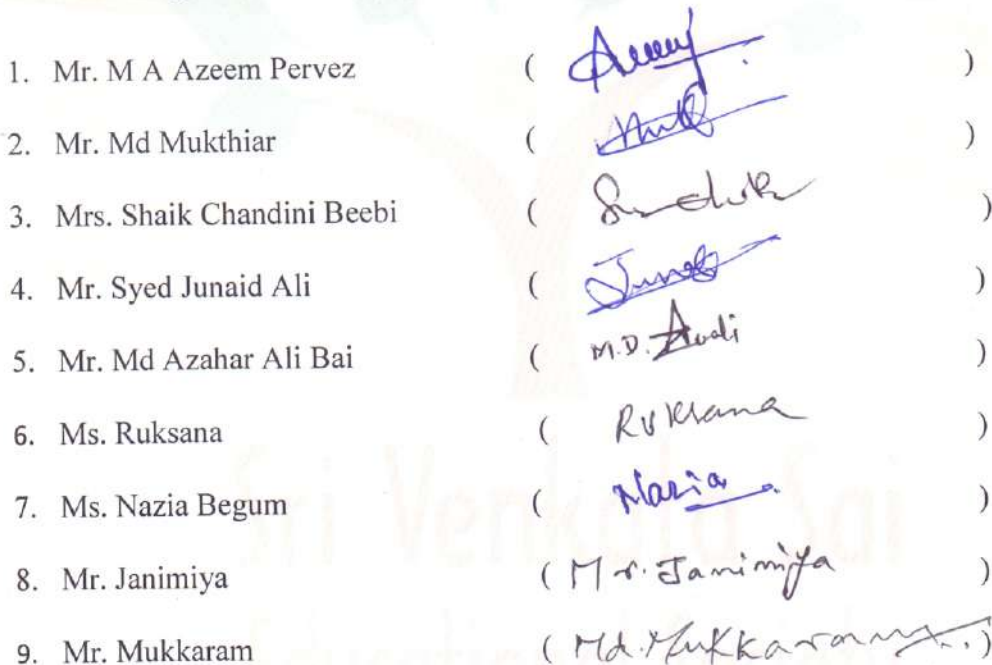 1. Mr. M A Azeem Pervez ( )
2. Mr. Md Mukthiar ( )
3. Mrs. Shaik Chandini Beebi ( )
4. Mr. Syed Junaid Ali ( )
5. Mr. Md Azahar Ali Bai ( M.D. )
6. Ms. Ruksana ( Ruksana )
7. Ms. Nazia Begum ( Nazia )
8. Mr. Janimiya ( Mr. Janimiya )
9. Mr. Mukkaram ( Md. Mukkaram )
Sri Venkata Sai